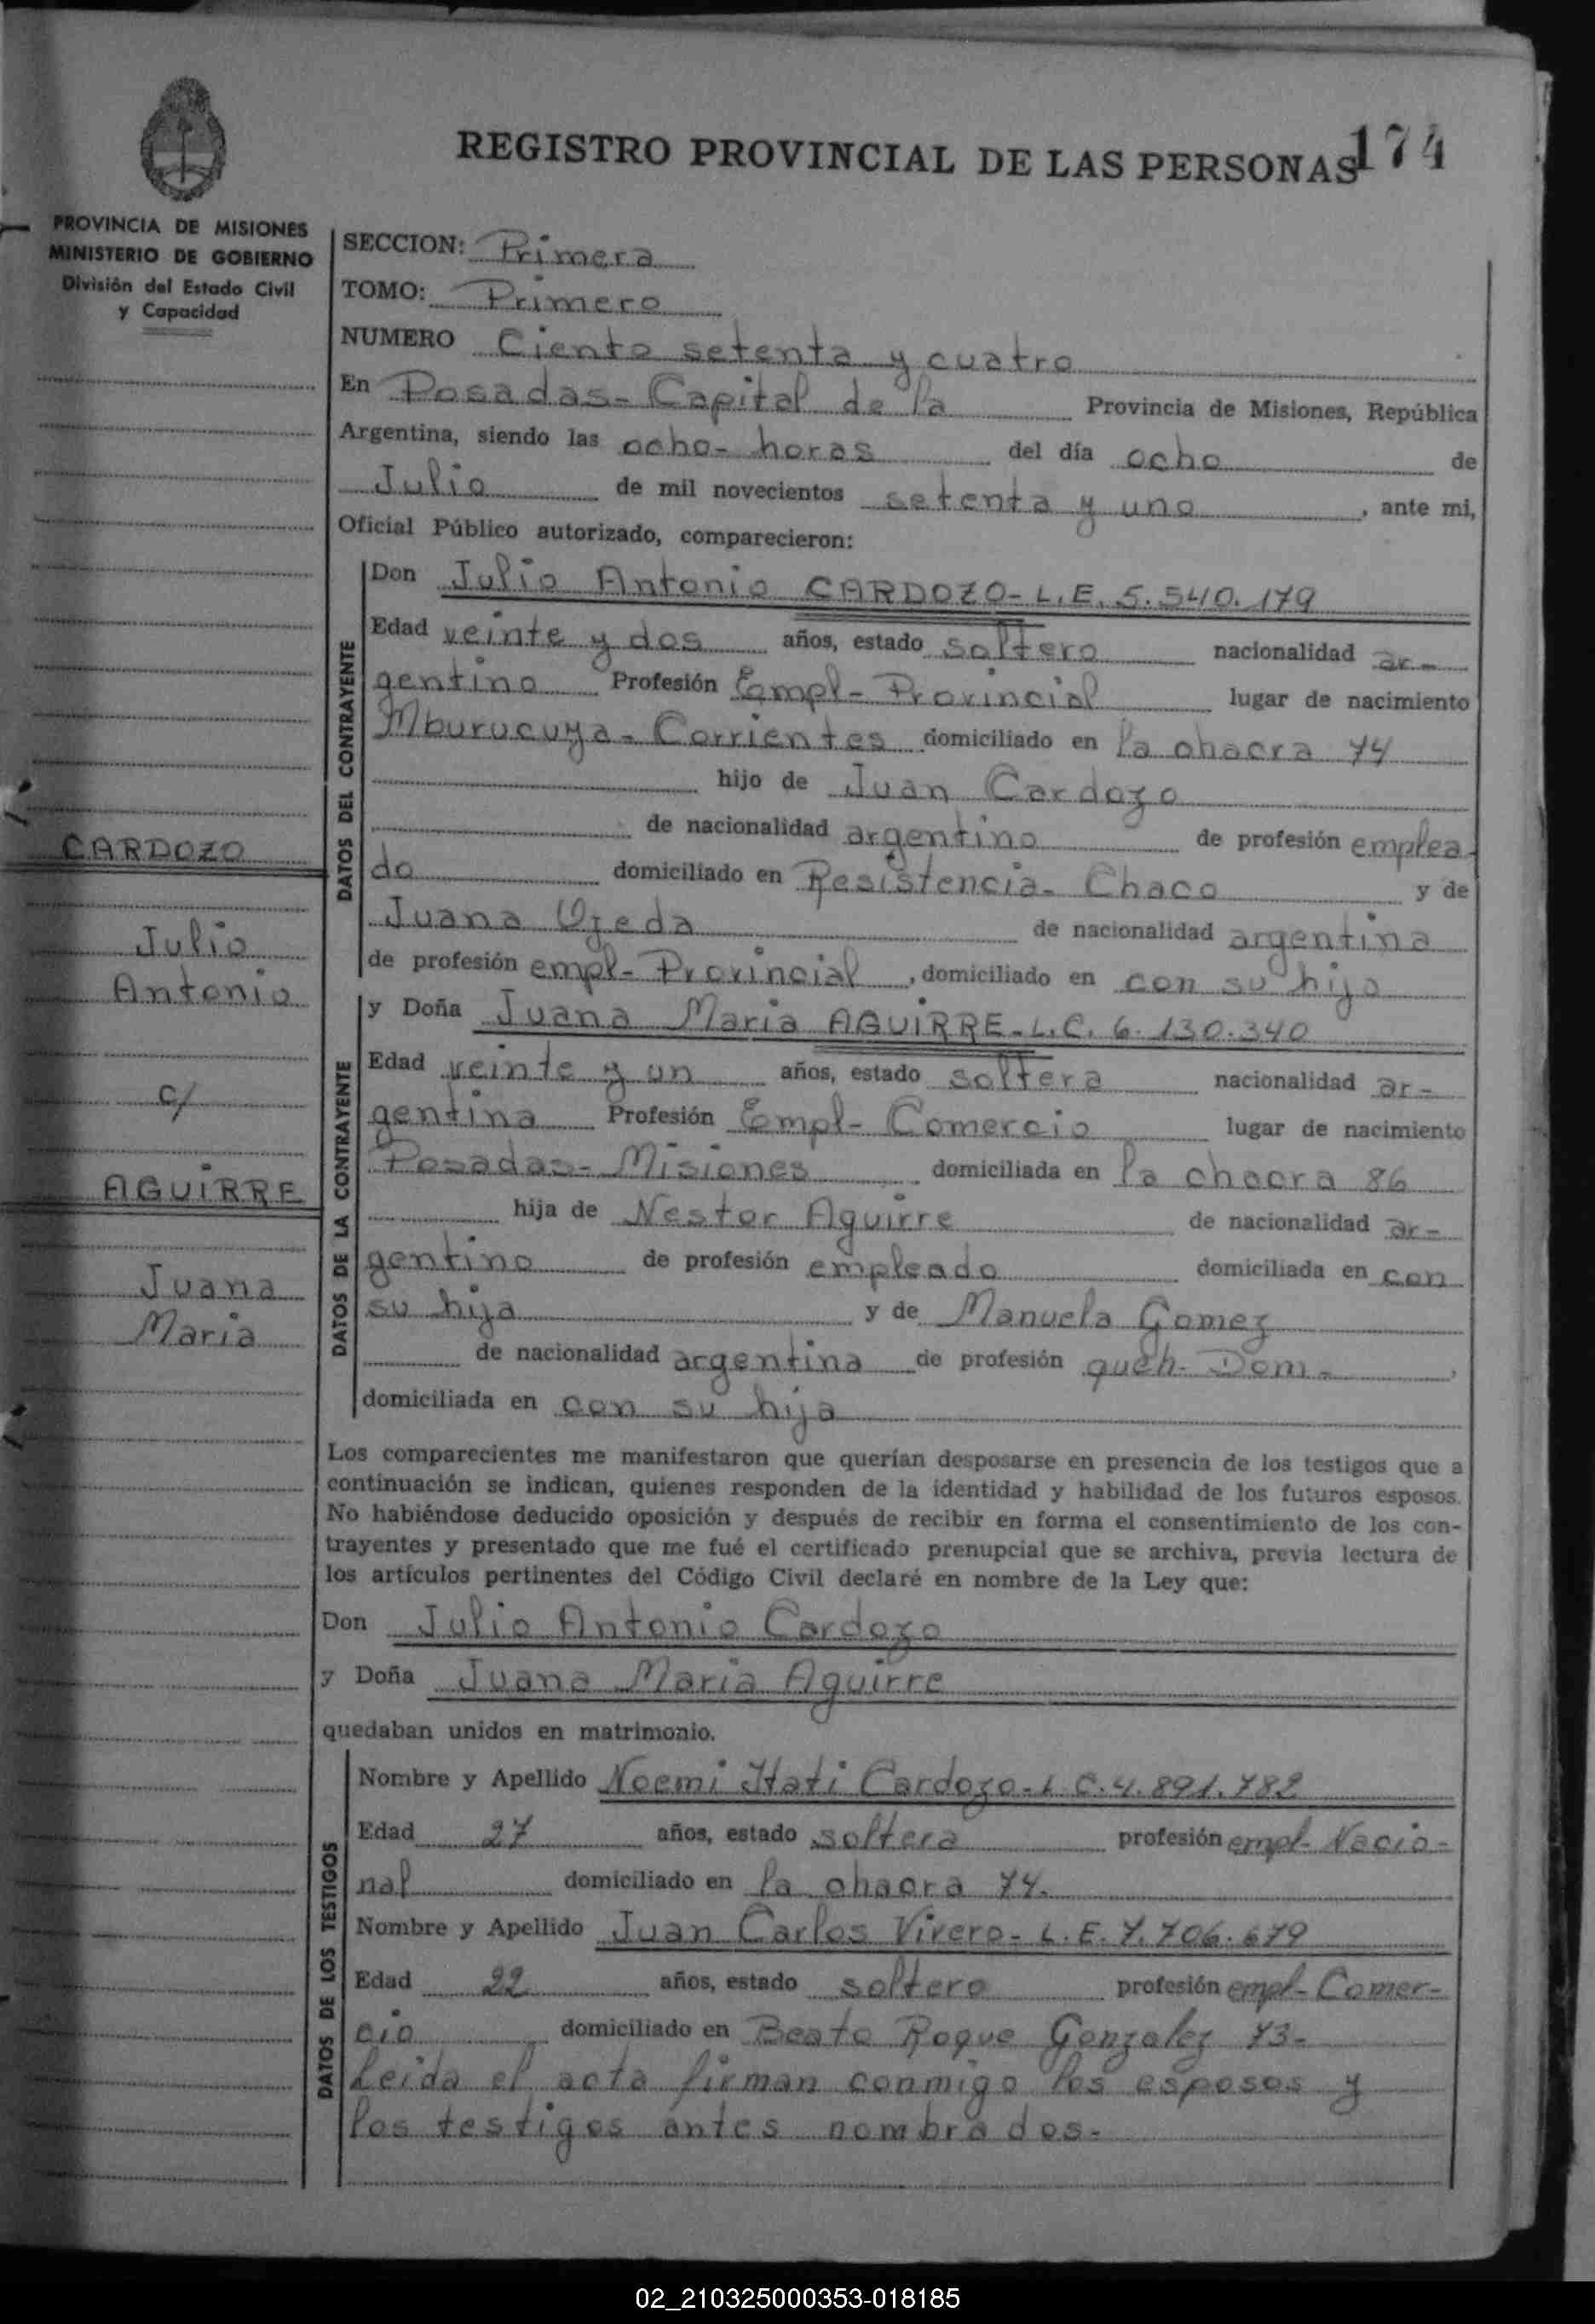 REGISTRO PROVINCIAL DE LAS PERSONAS 174
PROVINCIA DE MISIONES
MINISTERIO DE GOBIERNO
División del Estado Civil
y Capacidad
CARDOZO
Julio
Antonio
c/
AGUIRRE
Juana
Maria
SECCION: Primera
TOMO: Primero
NUMERO Ciento setenta y cuatro
En Posadas- Capital de la Provincia de Misiones, República
Argentina, siendo las ocho- horas del día ocho de
Julio de mil novecientos setenta y uno, ante mi,
Oficial Público autorizado, comparecieron:
DATOS DEL CONTRAYENTE
Don Julio Antonio CARDOZO- L.E. 5.540.179
Edad veinte y dos años, estado soltero nacionalidad ar-
gentino Profesión Empl- Provincial lugar de nacimiento
Mburucuya- Corrientes domiciliado en la chacra 74
hijo de Juan Cardozo
de nacionalidad argentino de profesión emplea-
do domiciliado en Resistencia- Chaco y de
Juana Ojeda de nacionalidad argentina
de profesión empl- Provincial, domiciliado en con su hijo
DATOS DE LA CONTRAYENTE
y Doña Juana Maria AGUIRRE- L.C. 6.130.340
Edad veinte y un años, estado soltera nacionalidad ar-
gentina Profesión Empl- Comercio lugar de nacimiento
Posadas- Misiones domiciliada en la chacra 86
hija de Nestor Aguirre de nacionalidad ar-
gentino de profesión empleado domiciliada en con
su hija y de Manuela Gomez
de nacionalidad argentina de profesión queh- Dom-,
domiciliada en con su hija
Los comparecientes me manifestaron que querían desposarse en presencia de los testigos que a
continuación se indican, quienes responden de la identidad y habilidad de los futuros esposos.
No habiéndose deducido oposición y después de recibir en forma el consentimiento de los con-
trayentes y presentado que me fué el certificado prenupcial que se archiva, previa lectura de
los artículos pertinentes del Código Civil declaré en nombre de la Ley que:
Don Julio Antonio Cardozo
y Doña Juana Maria Aguirre
quedaban unidos en matrimonio.
DATOS DE LOS TESTIGOS
Nombre y Apellido Noemi Itati Cardozo- L.C. 4.891.782
Edad 27 años, estado soltera profesión empl- Nacio-
nal domiciliado en la chacra 74.
Nombre y Apellido Juan Carlos Vivero- L.E. 7.706.679
Edad 22 años, estado soltero profesión empl- Comer-
cio domiciliado en Beato Roque Gonzalez 73-
Leida el acta firman conmigo los esposos y
los testigos antes nombrados.
02_210325000353-018185